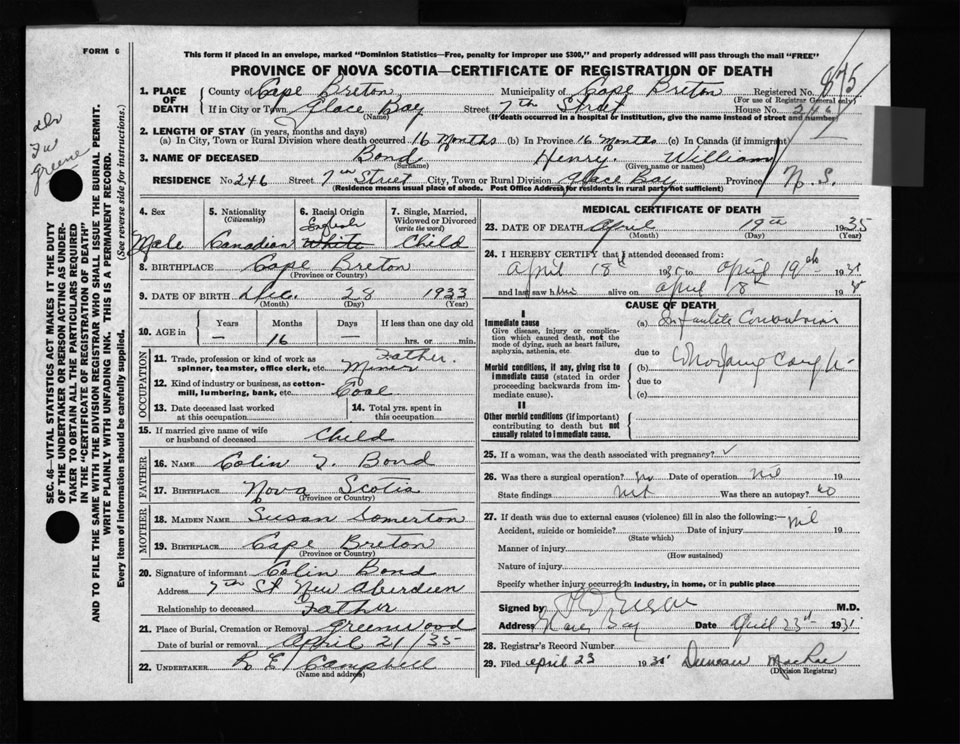 FORM 6
This form if placed in an envelope, marked "Dominion Statistics—Free, penalty for improper use $300," and properly addressed will pass through the mail "FREE"
PROVINCE OF NOVA SCOTIA—CERTIFICATE OF REGISTRATION OF DEATH
845
1. PLACE OF DEATH
County of Cape Breton Municipality of Cape Breton Registered No.
(For use of Registrar General only)
If in City or Town Glace Bay Street 7th Street House No. 246
(Name) (If death occurred in a hospital or institution, give the name instead of street and number)
2. LENGTH OF STAY (in years, months and days)
(a) In City, Town or Rural Division where death occurred 16 Months (b) In Province 16 Months (c) In Canada (if immigrant)
3. NAME OF DECEASED Bond Henry William
(Surname) (Given name or names)
RESIDENCE No. 246 Street 7th Street City, Town or Rural Division Glace Bay Province N. S.
(Residence means usual place of abode. Post Office Address for residents in rural parts not sufficient)
4. Sex Male
5. Nationality (Citizenship) Canadian
6. Racial Origin English White
7. Single, Married, Widowed or Divorced (write the word) Child
8. BIRTHPLACE Cape Breton
(Province or Country)
9. DATE OF BIRTH Dec. 28 1933
(Month) (Day) (Year)
10. AGE in Years Months Days If less than one day old
— 16 — hrs. or min.
OCCUPATION
11. Trade, profession or kind of work as spinner, teamster, office clerk, etc. Father. Miner
12. Kind of industry or business, as cotton-mill, lumbering, bank, etc. Coal
13. Date deceased last worked at this occupation
14. Total yrs. spent in this occupation
15. If married give name of wife or husband of deceased Child
FATHER
16. NAME Colin J. Bond
17. BIRTHPLACE Nova Scotia
(Province or Country)
MOTHER
18. MAIDEN NAME Susan Somerton
19. BIRTHPLACE Cape Breton
(Province or Country)
20. Signature of informant Colin Bond
Address 7th St New Aberdeen
Relationship to deceased Father
21. Place of Burial, Cremation or Removal Greenwood
Date of burial or removal April 21/35-
22. UNDERTAKER Campbell
(Name and address)
MEDICAL CERTIFICATE OF DEATH
23. DATE OF DEATH April 19th 1935
(Month) (Day) (Year)
24. I HEREBY CERTIFY that I attended deceased from:
April 18th 1935 to April 19th 193
and last saw him alive on April 18th 193
CAUSE OF DEATH
I
Immediate cause
Give disease, injury or complication which caused death, not the mode of dying, such as heart failure, asphyxia, asthenia, etc.
(a) Infantile Convulsions
due to
Morbid conditions, if any, giving rise to immediate cause (stated in order proceeding backwards from immediate cause).
(b) Whooping Cough
due to
(c)
II
Other morbid conditions (if important) contributing to death but not causally related to immediate cause.
25. If a woman, was the death associated with pregnancy?
26. Was there a surgical operation? No Date of operation nil 19
State findings Was there an autopsy? no
27. If death was due to external causes (violence) fill in also the following:— nil
Accident, suicide or homicide? Date of injury 19
(State which)
Manner of injury
(How sustained)
Nature of injury
Specify whether injury occurred in industry, in home, or in public place
Signed by M.D.
Address Glace Bay Date April 23rd 193
28. Registrar's Record Number
29. Filed April 23 1935 Duncan MacRae
(Division Registrar)
SEC. 46—VITAL STATISTICS ACT MAKES IT THE DUTY
OF THE UNDERTAKER OR PERSON ACTING AS UNDER-
TAKER TO OBTAIN ALL THE PARTICULARS REQUIRED
IN THE "CERTIFICATE OF REGISTRATION OF DEATH"
AND TO FILE THE SAME WITH THE DIVISION REGISTRAR WHO SHALL ISSUE THE BURIAL PERMIT.
WRITE PLAINLY WITH UNFADING INK. THIS IS A PERMANENT RECORD.
Every item of information should be carefully supplied. (See reverse side for instructions.)
Greene